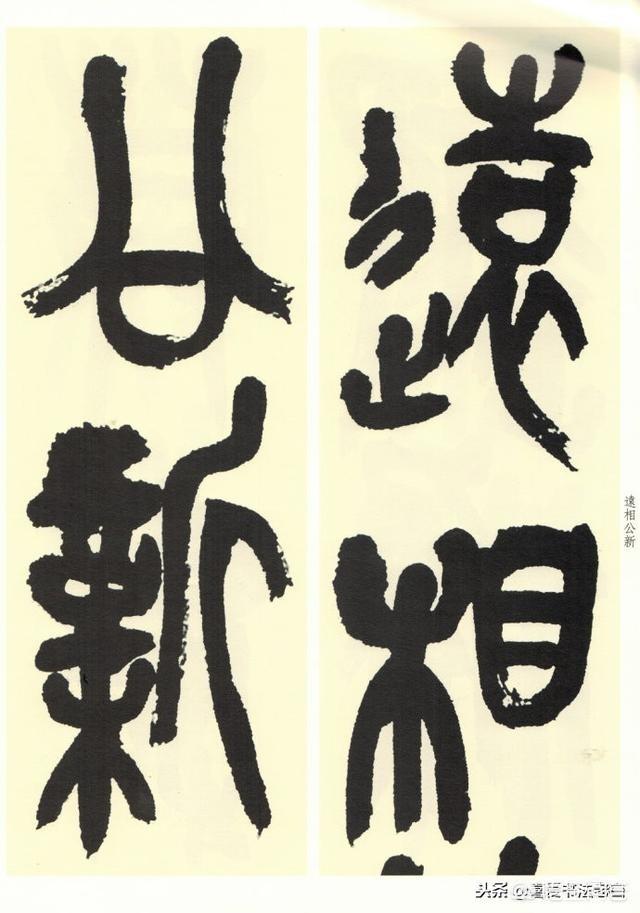 遠相
公新
遠相公新
头条